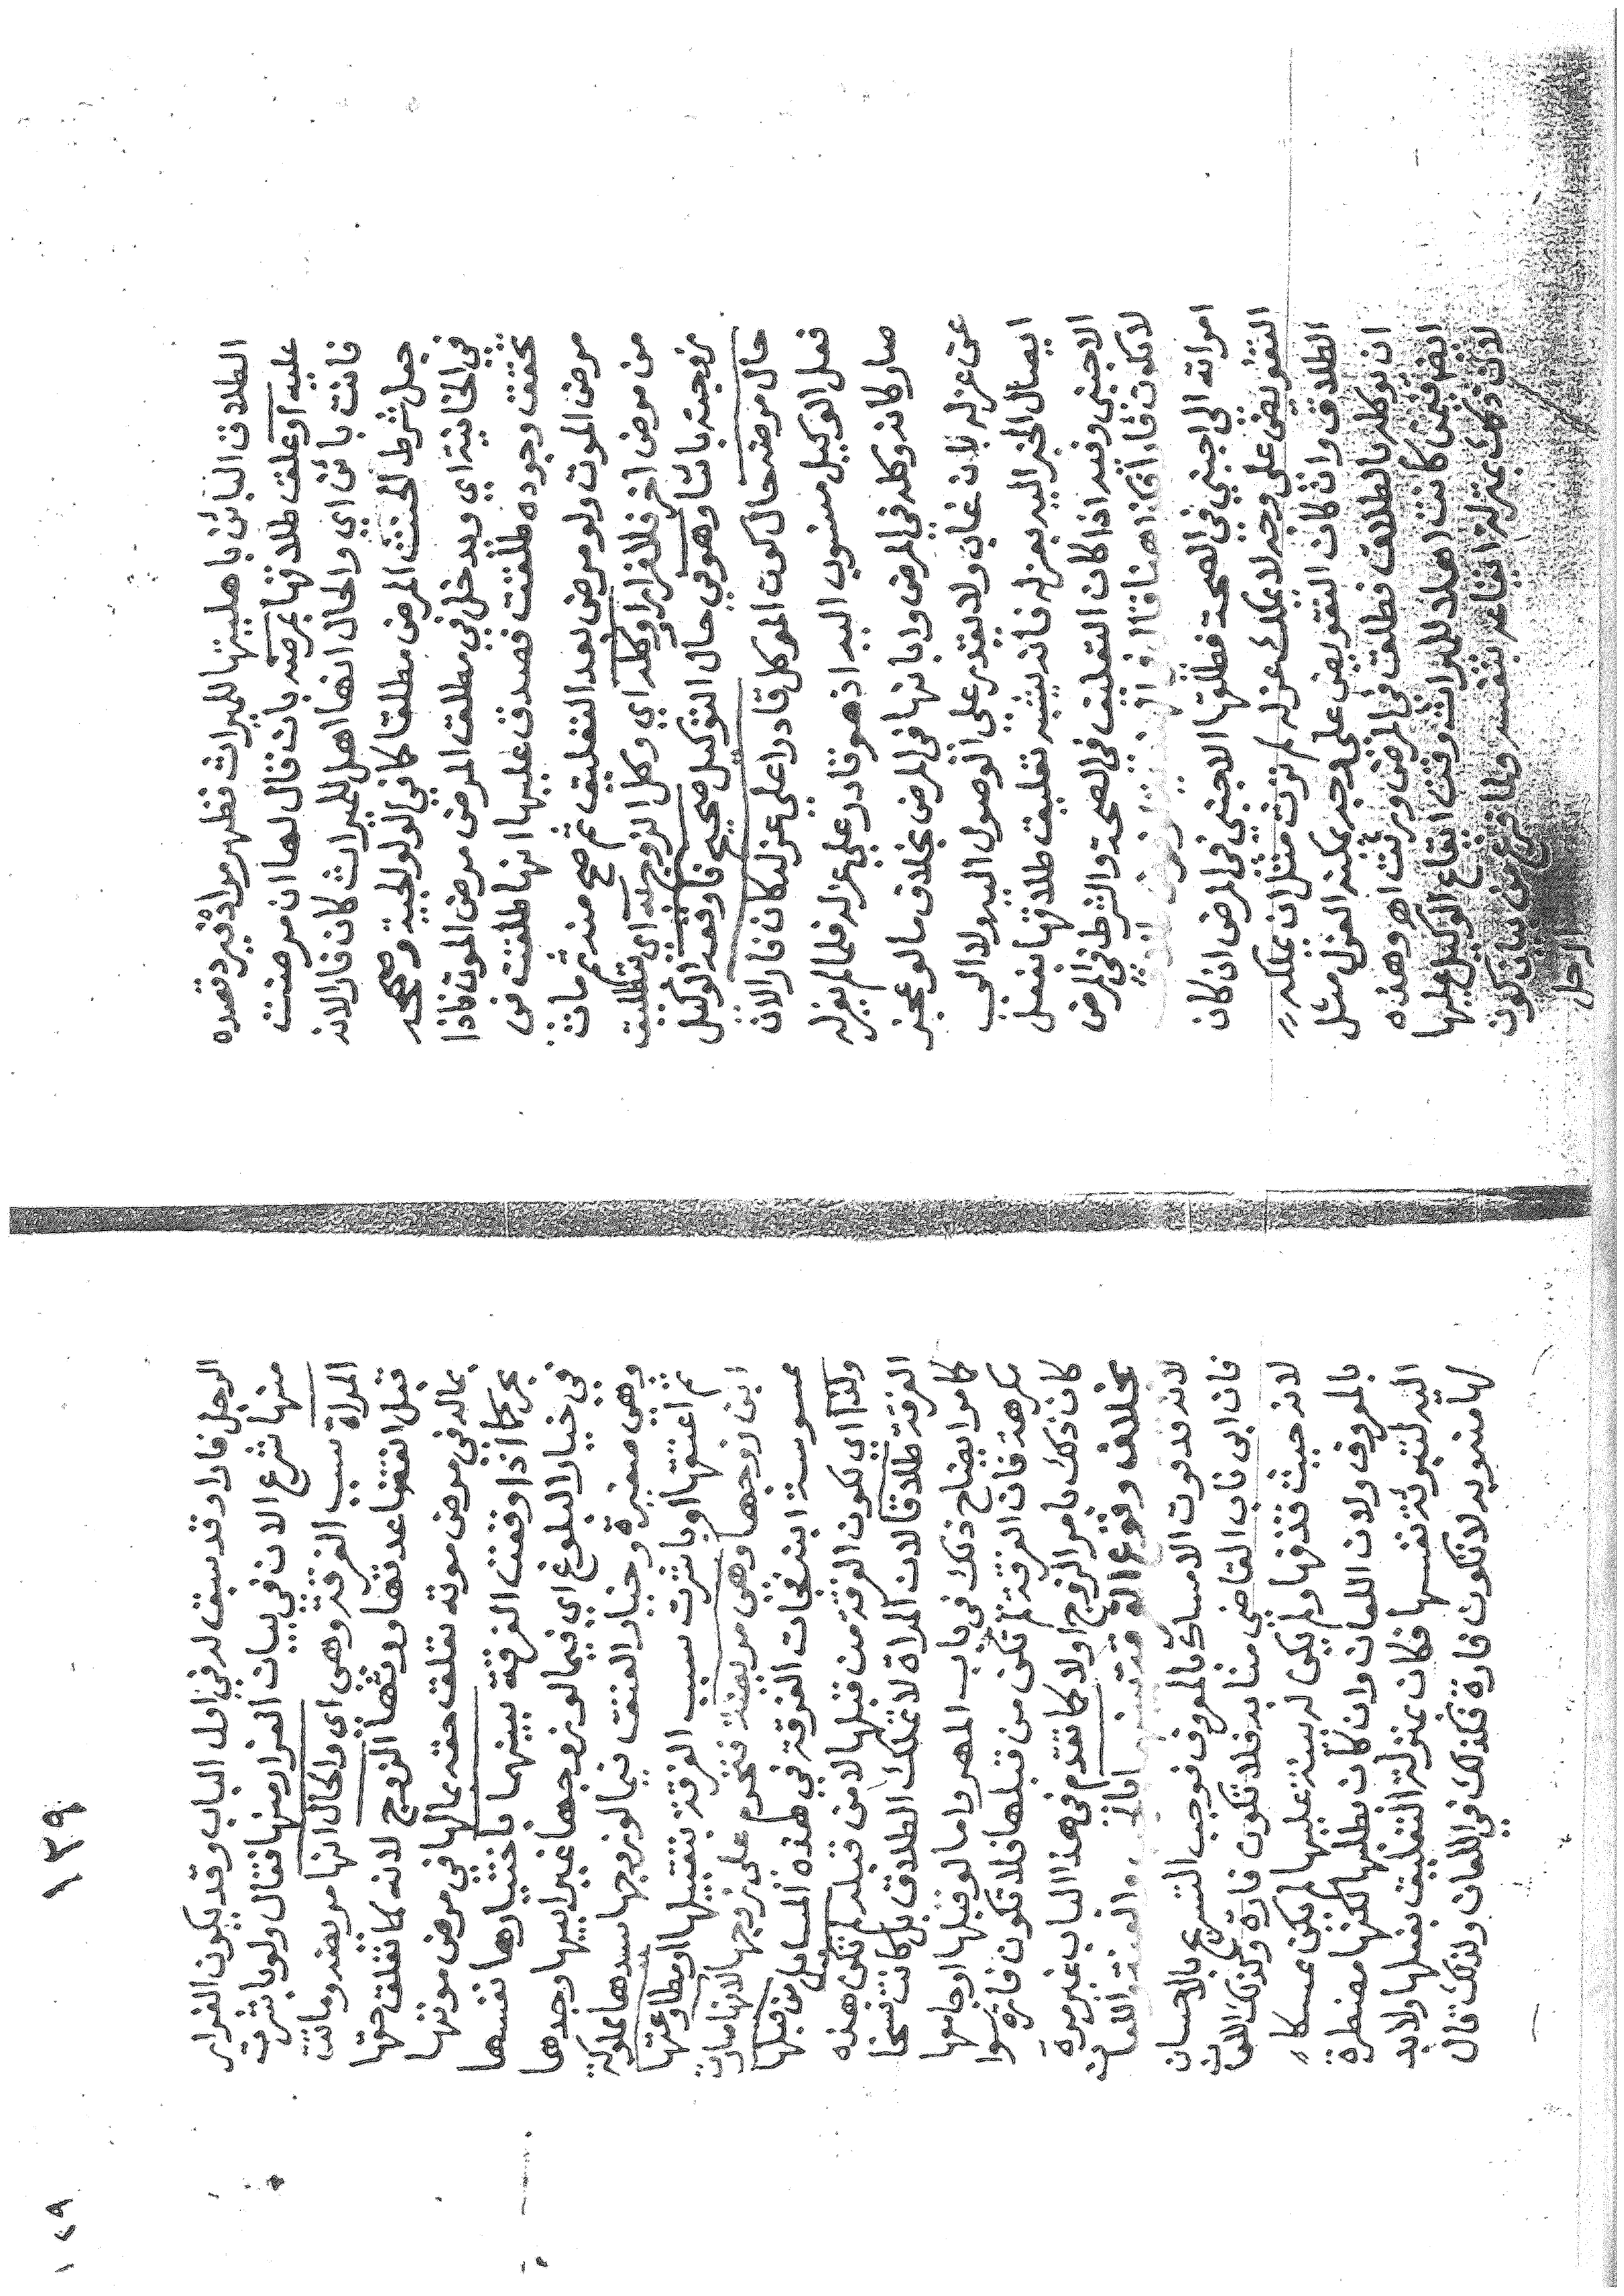 الطلاق البائن باهليتها للميراث تظهر فيرد قصده
عليه او علق طلاقها بمرضه بان قال لها ان مرضت
فانت بائن اي والحال انها اهل للميراث كان فارا لانه
جعل شرط الحنث المرض مطلقا كما في الولوالجية وصححه
في الخانية اي ويدخل في مطلق المرض مرض الموت فاذا
تحقق وجوده طلقت فصدق عليها انها طلقت في
مرض الموت ولو مرض بعد التعليق ثم صح منه ثم مات
من مرض اخر فلا فرار او وكله اي وكل الزوج اي بتطليق
زوجته بائنا وهو في حال التوكيل صحيح فاوقعه الوكيل
حال مرضه حال كون الموكل قادرا على عزله كان فارا لان
فعل الوكيل منسوب اليه اذ هو قادر على عزله فلما لم يعزله
صار كانه وكله في المرض وابانها في المرض بخلاف ما لو عجز
عن عزله بان غاب ولا يقدر على الوصول اليه ولا الى
ايصال الخبر اليه بعزله فانه يشبه تعليق طلاقها بفعل
الاجنبي وفيه اذا كان التعليق في الصحة والشرط في المرض
لا يكون فارا فكذا هنا قال في
امراته الى اجنبي في الصحة فطلقها الاجنبي في المرض ان كان
التفويض على وجه لا يملك عزله لم ترث مثل ان يملكه
الطلاق وان كان التفويض على وجه يمكنه العزل مثل
ان يوكله بالطلاق فطلق في المرض ورثت اهـ وهذه
ايضا فيمن كانت اهلا للميراث وقت ايقاع الوكيل عليها
لان ذلك بمنزلة ايقاعه بنفسه ولما فرغ من بيان كون
الرجل
١٣٩
١٢٩
الرجل فارا وقد سبق له في اول الباب وقد يكون الفرار
منها شرع الان في بيان الفرار منها فقال ولو باشرت
المراة سبب الفرقة وهي اي والحال انها مريضة وماتت
قبل انقضا عدتها ورثها الزوج لانه كما تعلق حقها
بماله في مرض موته تعلق حقه بمالها في مرض موتها
بمرضها كما اذا وقعت الفرقة بينهما باختيارها نفسها
في خيار البلوغ اي فيما لو زوجها غير ابيها وجدها
وهي صغيرة وخيار العتق فيما لو زوجها سيدها مملوكة
ثم اعتقها او باشرت سبب الفرقة بتقبيلها او مطاوعتها
ابن زوجها وهي مريضة فتحرم على زوجها لانها صارت
ممسوسة ابنه فجات الفرقة في هذه المسايل من قبلها
ولذا اي لكون الفرقة من قبلها لا من قبله لم تكن هذه
الفرقة طلاقا لان المراة لا تملك الطلاق بل كانت فسخا
كما مر ايضاح ذلك في باب المهر واما لو قبلها او جامعها
مكرهة فان الفرقة لم تكن من قبلها فلا تكون فارة سوا
كان ذلك بامر الزوج او لا كما تقدم في هذا الباب غير مرة
بخلاف وقوع الفرقة
لانه لا يفوت الامساك بالمعروف فوجب التسريح بالاحسان
فان ابى ناب القاضي منابه فلا تكون فارة وكذلك اللعان
لانه حيث قذفها ولم يكن له بينة عليها لم يكن ممسكا
بالمعروف ولان اللعان وان كان بطلبها لكنها مضطرة
اليه لتبرئة نفسها فكان بمنزلة التعليق بفعلها ولابد
لها منه وبه لا تكون فارة فكذلك في اللعان ولذلك قال